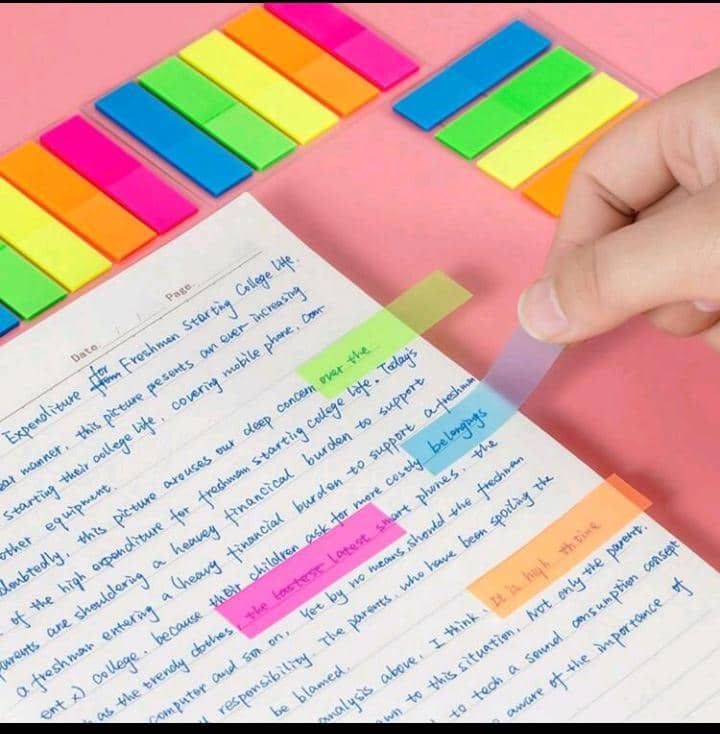 Date. / / Page.
Expenditure for Freshman Starting College Life.
manner, this picture pesents an ever increasing
starting their college life, covering mobile phone, com
other equipment.
doubtedly, this picture arouses our deep concern over the
of the high expenditure for freshmam starting college life. Today's
parents are shouldering a heavey financical burden to support
a freshman entering a (heavy financial burden to support a freshman
ent x) college, because their children ask for more costly belongings
as the trendy clothes, the lastest latest smart phones, the
computer and son on. Yet by no means, should the freshman
responsibility. The parents, who have been spoiling the
be blamed.
analysis above, I think, It is high
to this situation. Not only the parents,
to tech a sound consumption concept
aware of the importance of